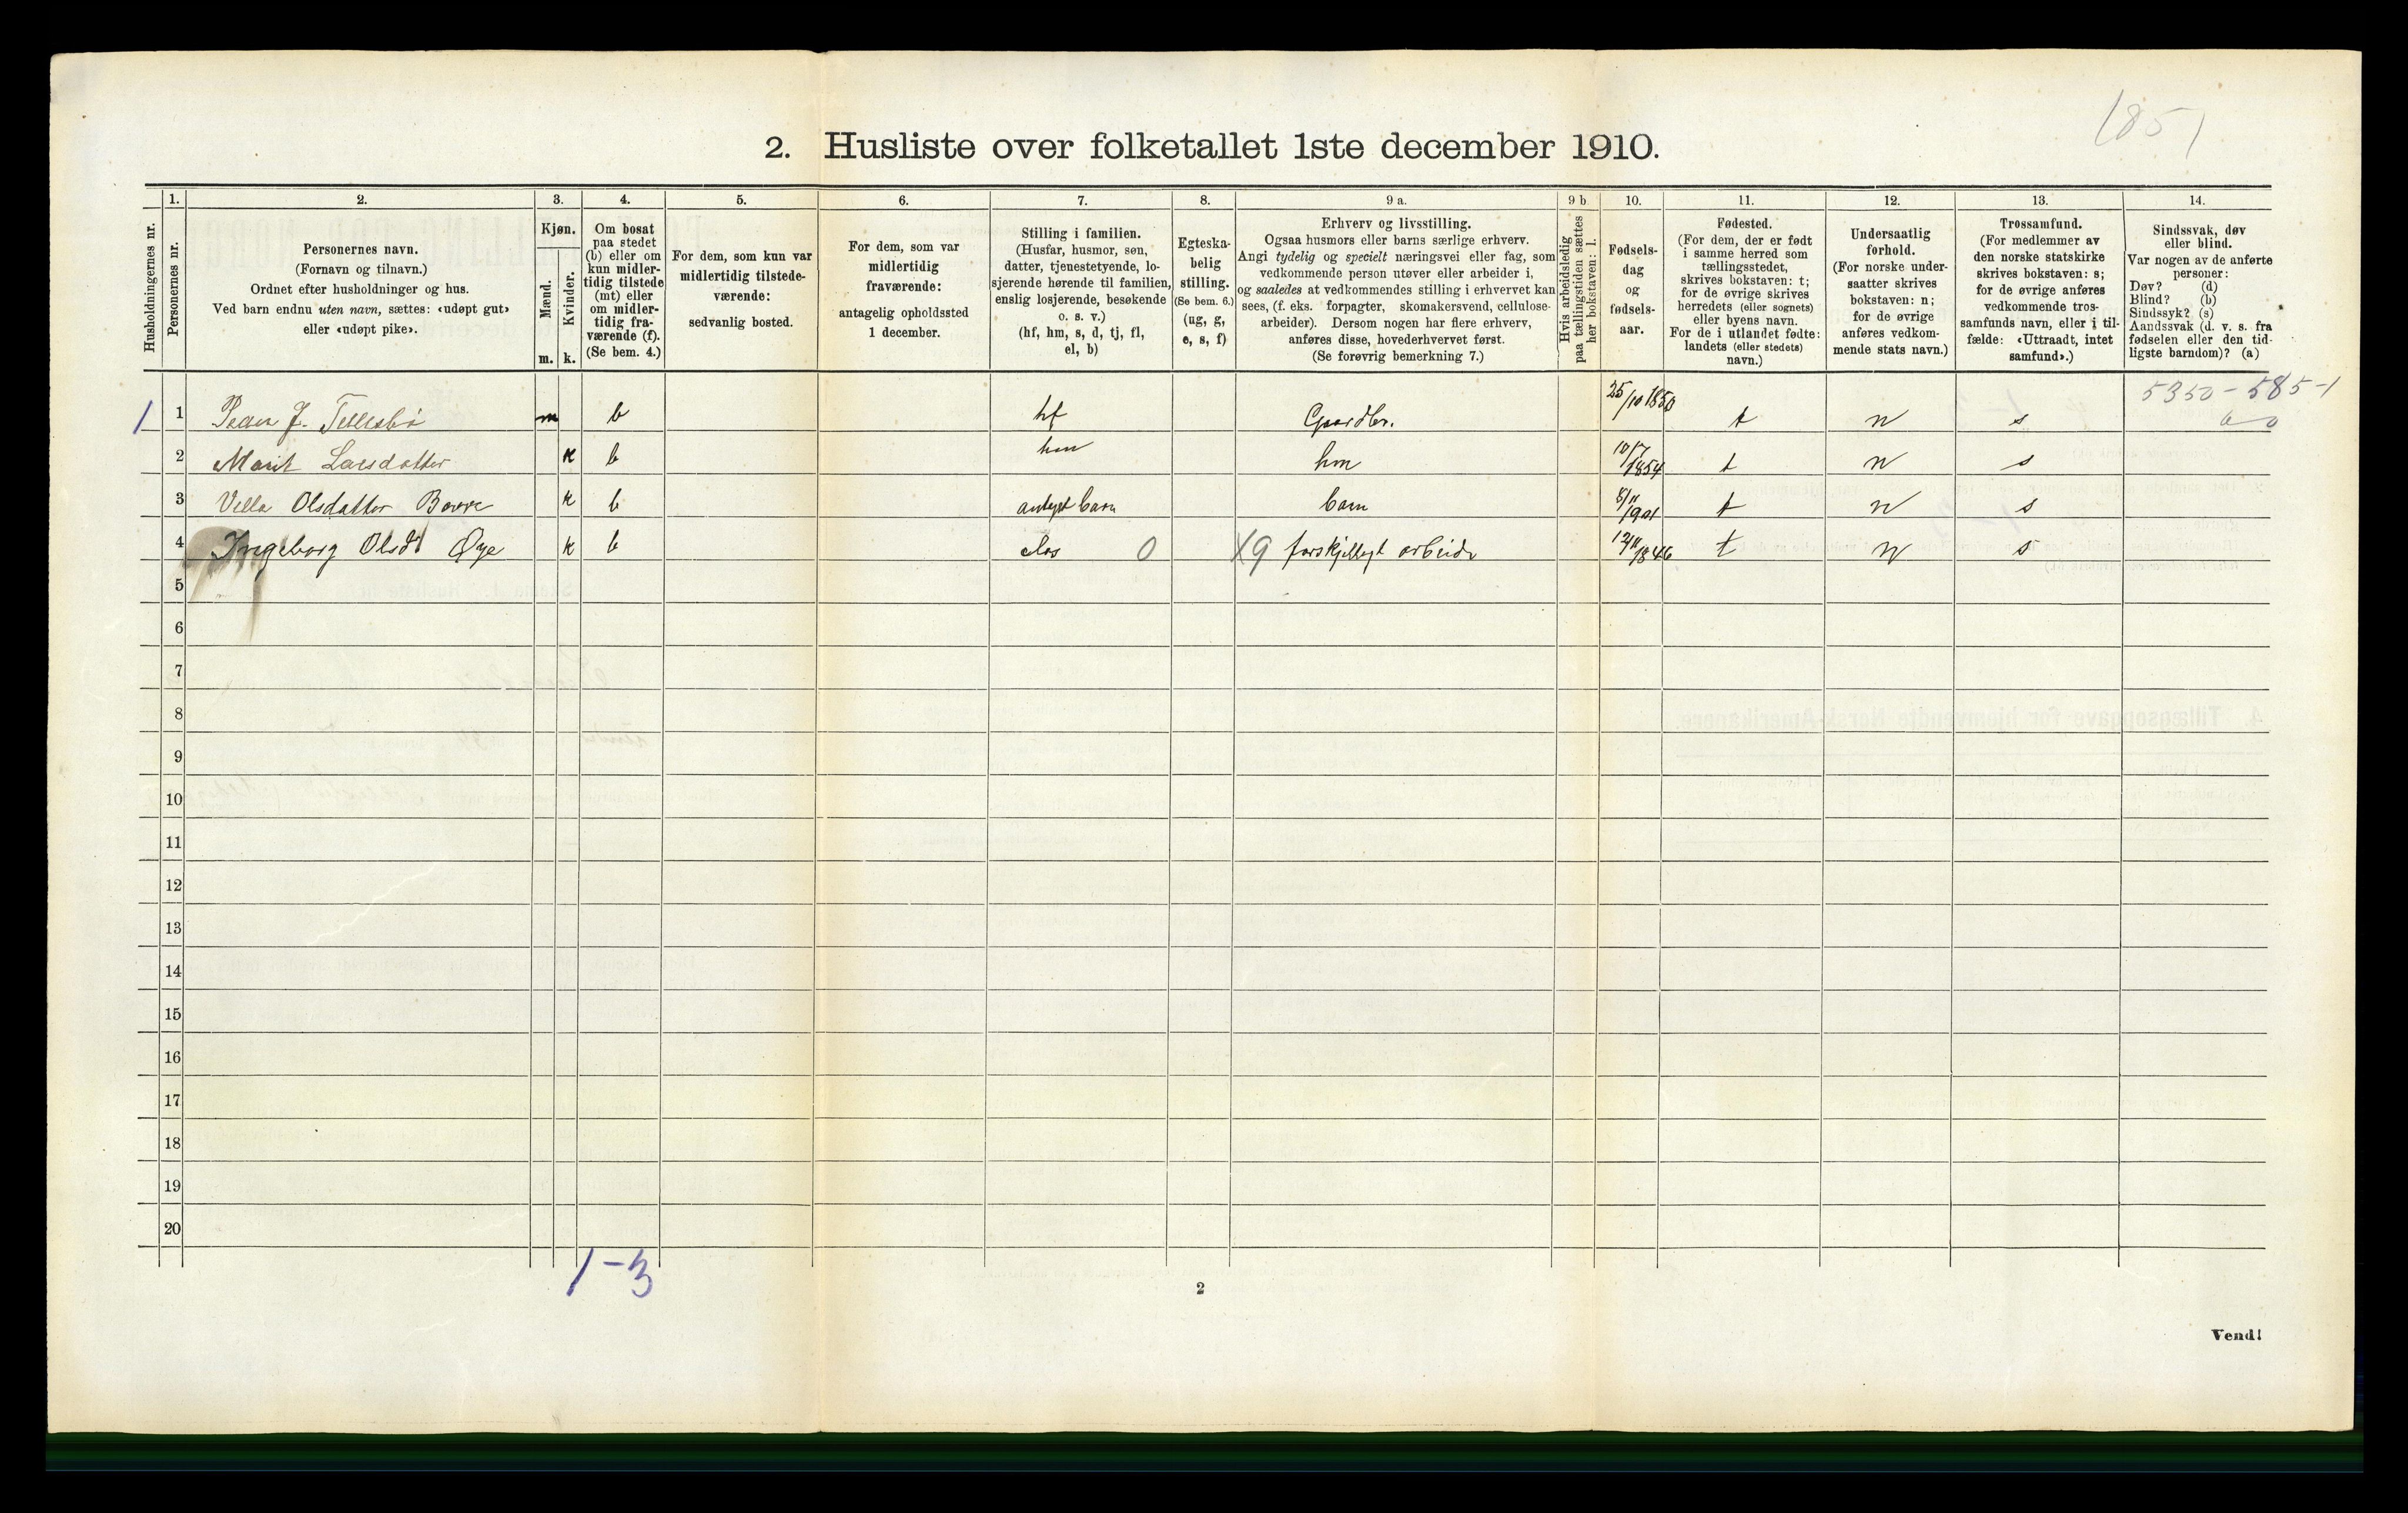 1851
2. Husliste over folketallet 1ste december 1910.
1. 2. 3. 4. 5. 6. 7. 8. 9 a. 9 b 10. 11. 12. 13. 14.
Husholdningernes nr.
Personernes nr.
Personernes navn.
(Fornavn og tilnavn.)
Ordnet efter husholdninger og hus.
Ved barn endnu uten navn, sættes: «udøpt gut»
eller «udøpt pike».
Kjøn.
Mænd.
Kvinder.
m. k.
Om bosat
paa stedet
(b) eller om
kun midler-
tidig tilstede
(mt) eller
om midler-
tidig fra-
værende (f).
(Se bem. 4.)
For dem, som kun var
midlertidig tilstede-
værende:
sedvanlig bosted.
For dem, som var
midlertidig
fraværende:
antagelig opholdssted
1 december.
Stilling i familien.
(Husfar, husmor, søn,
datter, tjenestetyende, lo-
sjerende hørende til familien,
enslig losjerende, besøkende
o. s. v.)
(hf, hm, s, d, tj, fl,
el, b)
Egteska-
belig
stilling.
(Se bem. 6.)
(ug, g,
e, s, f)
Erhverv og livsstilling.
Ogsaa husmors eller barns særlige erhverv.
Angi tydelig og specielt næringsvei eller fag, som
vedkommende person utøver eller arbeider i,
og saaledes at vedkommendes stilling i erhvervet kan
sees, (f. eks. forpagter, skomakersvend, cellulose-
arbeider). Dersom nogen har flere erhverv,
anføres disse, hovederhvervet først.
(Se forøvrig bemerkning 7.)
Hvis arbeidsledig
paa tællingstiden sættes
her bokstaven: l.
Fødsels-
dag
og
fødsels-
aar.
Fødested.
(For dem, der er født
i samme herred som
tællingsstedet,
skrives bokstaven: t;
for de øvrige skrives
herredets (eller sognets)
eller byens navn.
For de i utlandet fødte:
landets (eller stedets)
navn.)
Undersaatlig
forhold.
(For norske under-
saatter skrives
bokstaven: n;
for de øvrige
anføres vedkom-
mende stats navn.)
Trossamfund.
(For medlemmer av
den norske statskirke
skrives bokstaven: s;
for de øvrige anføres
vedkommende tros-
samfunds navn, eller i til-
fælde: «Uttraadt, intet
samfund».)
Sindssvak, døv
eller blind.
Var nogen av de anførte
personer:
Døv? (d)
Blind? (b)
Sindssyk? (s)
Aandssvak (d. v. s. fra
fødselen eller den tid-
ligste barndom)? (a)
5350-585-1
1 1 J. m b hf Gaardbr. 25/10 1850 t n s
2 Marit Larsdatter k b hm hm 10/7 1854 t n s
3 Olsdatter k b barn barn 8/11 1901 t n s
4 Ingeborg Olsd Øye k b los 0 X9 forskjelligt arbeide 12/11 1846 t n s
5
6
7
8
9
10
11
12
13
14
15
16
17
18
19
20
1-3
2
Vend!